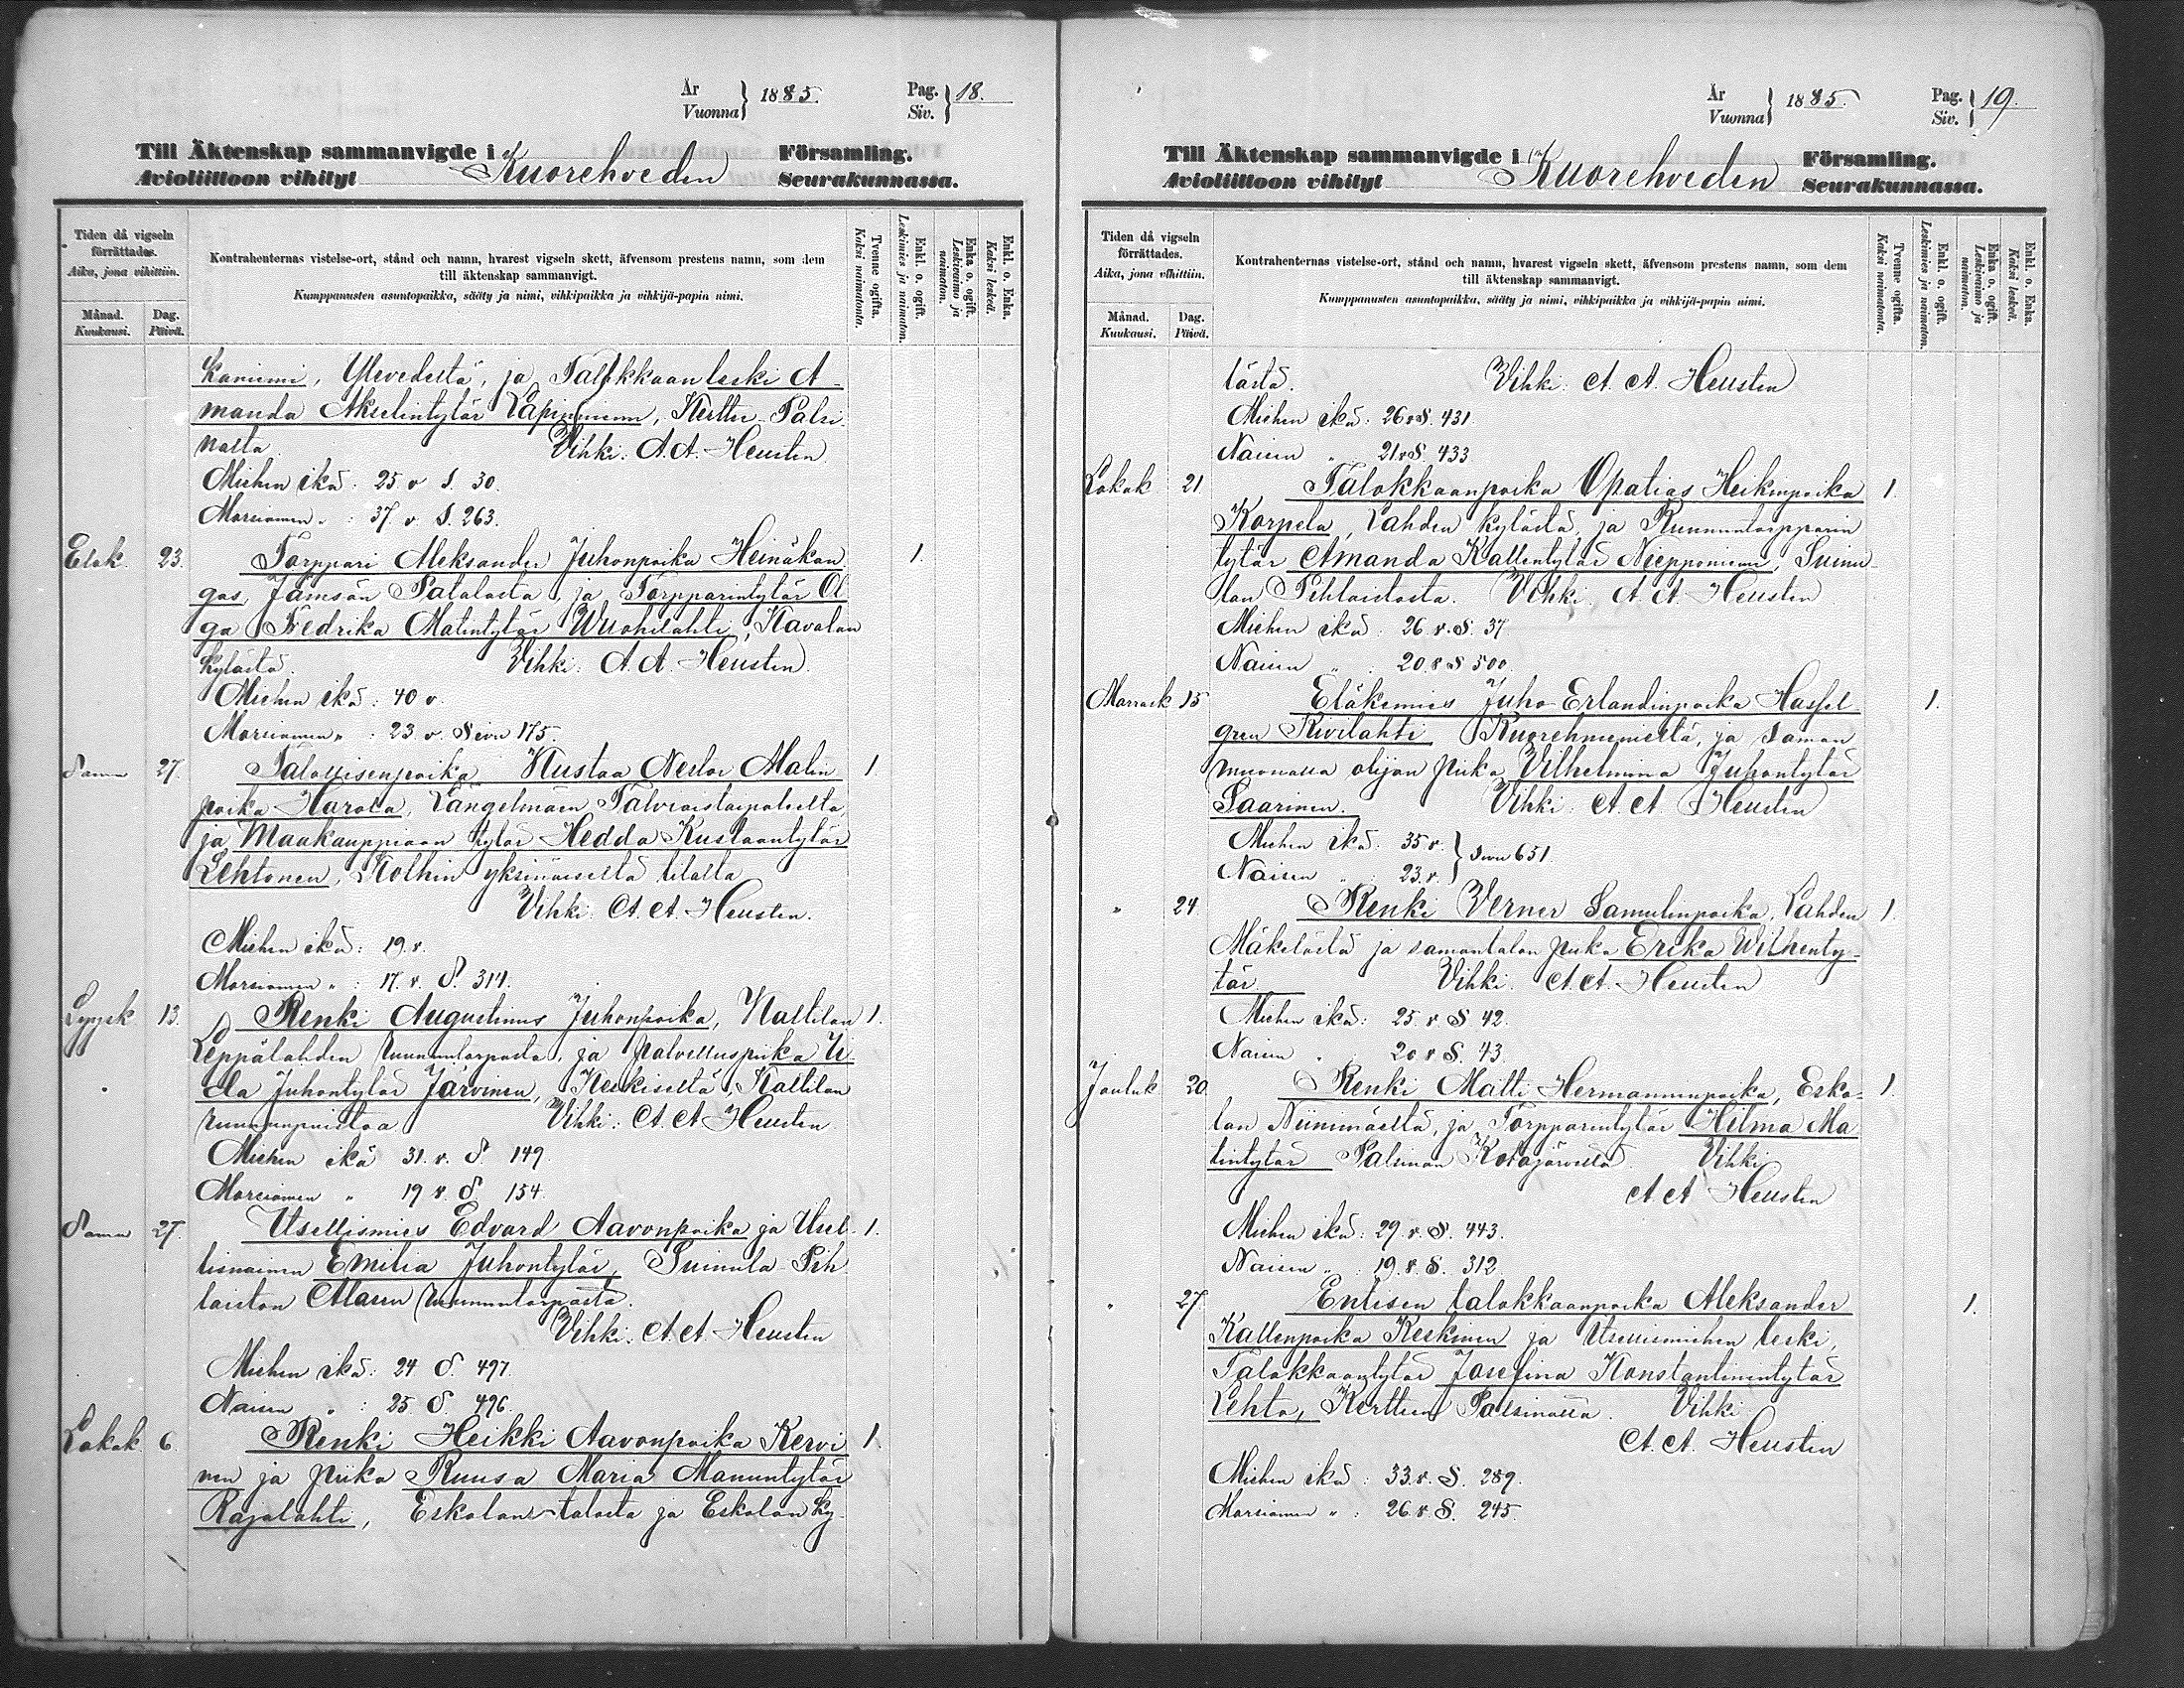 År
Vuonna } 1885. Pag.
Siv. } 18.
Till Äktenskap sammanvigde i Kuorehveden Församling.
Avioliittoon vihityt Seurakunnassa.
Tiden då vigseln förrättades.
Aika, jona vihittiin.
Månad.
Kuukausi.
Dag.
Päivä.
Kontrahenternas vistelse-ort, stånd och namn, hvarest vigseln skett, äfvensom prestens namn, som dem
till äktenskap sammanvigt.
Kumppanusten asuntopaikka, sääty ja nimi, vihkipaikka ja vihkijä-papin nimi.
Tvenne ogifta.
Kaksi naimatonta.
Enkl. o. ogift.
Leskimies ja naimaton.
Enka o. ogift.
Leskivaimo ja naimaton.
Enkl. o. Enka.
Kaksi leskeä.
kaniemi, Ylevedeltä, ja Talokkaan leski A-
manda Akselintytär Lapinniemi, Kerttu Palsi
nalta. Vihki: A. A. Heusten
Miehen ikä: 25 v S. 30.
Morsiamen " : 37 v. S. 263.
Elok. 23. Torppari Aleksander Juhonpoika Heinäkan 1.
gas, Jämsän Patalasta, ja Torpparintytär Ol
ga Fredrika Matintytär Wuohilahti, Kavalan
kylästä. Vihki: A. A. Heusten.
Miehen ikä: 40 v.
Morsiamen " : 23 v. Sivu 175.
Samn 27. Talollisenpoika Kustaa Nestor Malin 1
poika Harola, Längelmäen Talviaistaipaleelta,
ja Maakauppiaan tytär Hedda Kustaantytär
Lehtonen, Kolhin yksinäiseltä tilalta
Vihki: A. A. Heusten.
Miehen ikä: 19 v.
Morsiamen " : 17 v. S. 314.
Syysk 13. Renki Augustinus Juhonpoika, Kaltilan 1.
Leppälahden ruununtorpasta, ja palvelluspiika U-
la Juhontytär Järvinen, Keskiseltä, Kaltilan
ruununpuistoa Vihki: A. A Heusten
Miehen ikä 31. v. S. 149
Morsiamen " 19 v. S 154
Samn 27. Itsellismies Edvard Aavonpoika ja Itsel- 1.
lisnainen Emilia Juhontytär, Suinula Pih
laiston Alasen ruununtorpasta.
Vihki: A. A Heusten
Miehen ikä: 24 S. 497.
Naisen " : 25 S. 496.
Lokak 6 Renki Heikki Aavonpoika Kervi 1.
nen ja piika Ruusa Maria Manuntytär
Rajalahti, Eskolan-talosta ja Eskolan ky-
År
Vuonna } 1885. Pag.
Siv. } 19.
Till Äktenskap sammanvigde i Kuorehveden Församling.
Avioliittoon vihityt Seurakunnassa.
Tiden då vigseln förrättades.
Aika, jona vihittiin.
Månad.
Kuukausi.
Dag.
Päivä.
Kontrahenternas vistelse-ort, stånd och namn, hvarest vigseln skett, äfvensom prestens namn, som dem
till äktenskap sammanvigt.
Kumppanusten asuntopaikka, sääty ja nimi, vihkipaikka ja vihkijä-papin nimi.
Tvenne ogifta.
Kaksi naimatonta.
Enkl. o. ogift.
Leskimies ja naimaton.
Enka o. ogift.
Leskivaimo ja naimaton.
Enkl. o. Enka.
Kaksi leskeä.
lästä. Vihki: A. A. Heusten
Miehen ikä: 26 v S. 431.
Naisen " 21 v S. 433
Lokak 21. Talokkaanpoika Opatias Heikinpoika 1.
Korpela, Lahden kylästä, ja Ruununtorpparin
tytär Amanda Kallentytär Niepponiemi, Suinu-
lan Pihlaistosta. Vihki: A. A. Heusten
Miehen ikä: 26. v. S. 37
Naisen " : 20 v S 500.
Marrask 15 Eläkemies Juho Erlandinpoika Hassel 1.
gren Kivilahti Kuorehniemeltä, ja saman
muonassa olijan piika Vilhelmina Juhontytär
Saarinen. Vihki: A. A. Heusten
Miehen ikä: 35 v. } Sivu 651.
Naisen " : 23. v. }
" 24. Renki Verner Samulinpoika, Lahden 1.
Mäkelästä ja samantalon piika Erika Wilhenty-
tär. Vihki: A. A. Heusten
Miehen ikä: 25. v S 42.
Naisen " 20 v S. 43.
Jouluk 20. Renki Matti Hermanninpoika, Esko- 1.
lan Niinimäeltä, ja Torpparintytär Hilma Ma
tintytär Palsinan Kotajärvestä. Vihki
A. A Heusten
Miehen ikä: 29. v. S. 443.
Naisen " : 19. v. S. 312
" 27 Entisen talokkaanpoika Aleksander 1.
Kallenpoika Keskinen ja Itsellismiehen leski,
Talokkaantytär Josefina Konstantinintytär
Lehto, Kerttun Palsinassa. Vihki
A. A. Heusten
Miehen ikä: 33. v. S. 289.
Morsiamen " : 26. v. S. 245.